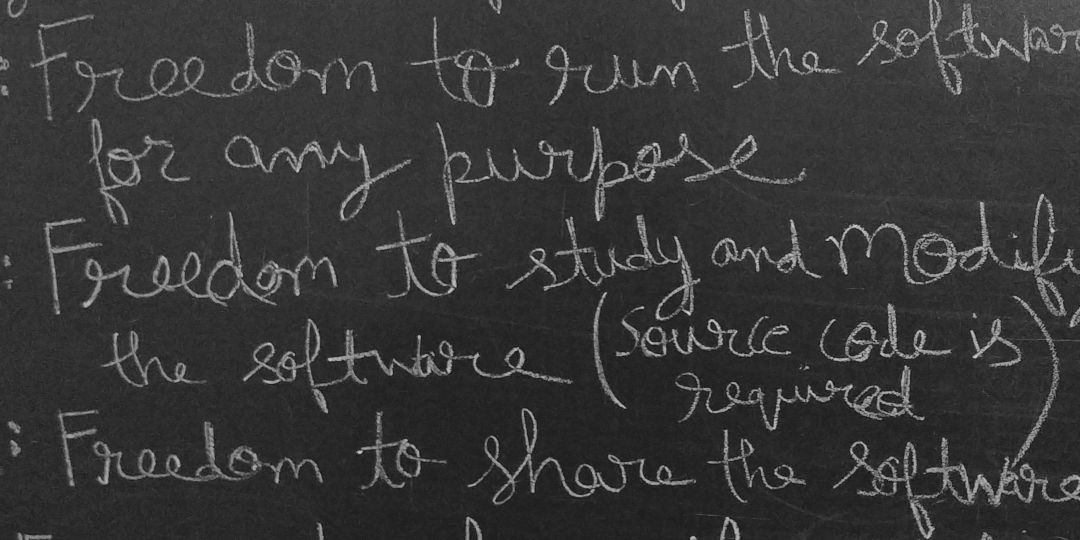 : Freedom to run the software
for any purpose
: Freedom to study and Modify
the software (source code is
required)
: Freedom to share the software